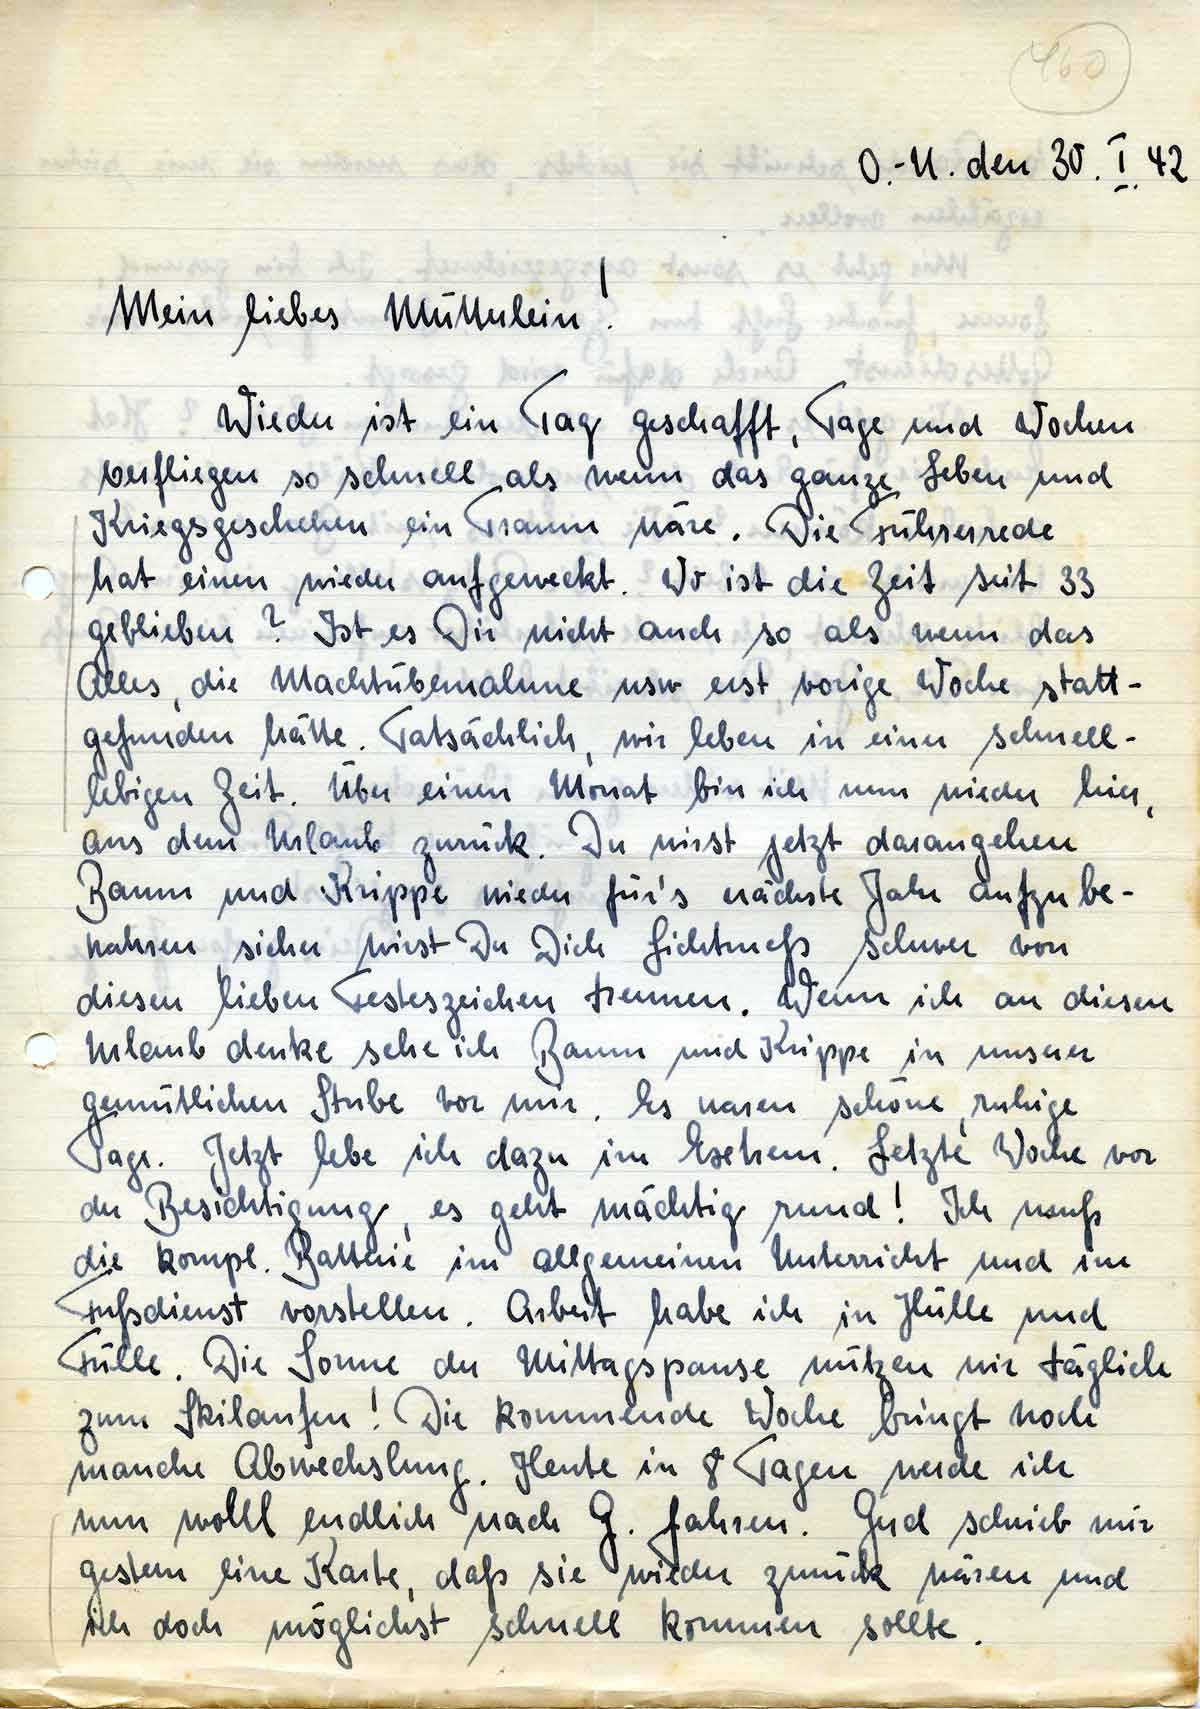 460
O.-U. den 30. I. 42
Mein liebes Mütterlein!
Wieder ist ein Tag geschafft, Tage und Wochen
verfliegen so schnell als wenn das ganze Leben und
Kriegsgeschehen ein Traum wäre. Die Führerrede
hat einen wieder aufgeweckt. Wo ist die Zeit seit 33
geblieben? Ist es Dir nicht auch so als wenn das
Alles, die Machtübernahme usw erst vorige Woche statt-
gefunden hätte. Tatsächlich, wir leben in einer schnell-
lebigen Zeit. Über einen Monat bin ich nun wieder hier,
aus dem Urlaub zurück. Du wirst jetzt darangehen
Baum und Krippe wieder für's nächste Jahr aufzube-
wahren, sicher wirst Du Dich Lichtmeß schwer von
diesen lieben Festeszeichen trennen. Wenn ich an diesen
Urlaub denke sehe ich Baum und Krippe in unserer
gemütlichen Stube vor mir. Es waren schöne, ruhige
Tage. Jetzt lebe ich dazu im Extrem. Letzte Woche vor
der Besichtigung, es geht mächtig rund! Ich muß
die kompl. Batterie im allgemeinen Unterricht und im
Fußdienst vorstellen. Arbeit habe ich in Hülle und
Fülle. Die Sonne der Mittagspause nützen wir täglich
zum Skilaufen! Die kommende Woche bringt noch
manche Abwechslung. Heute in 8 Tagen werde ich
nun wohl endlich nach G. fahren. Gud schrieb mir
gestern eine Karte, daß sie wieder zurück wären und
ich doch möglichst schnell kommen sollte.